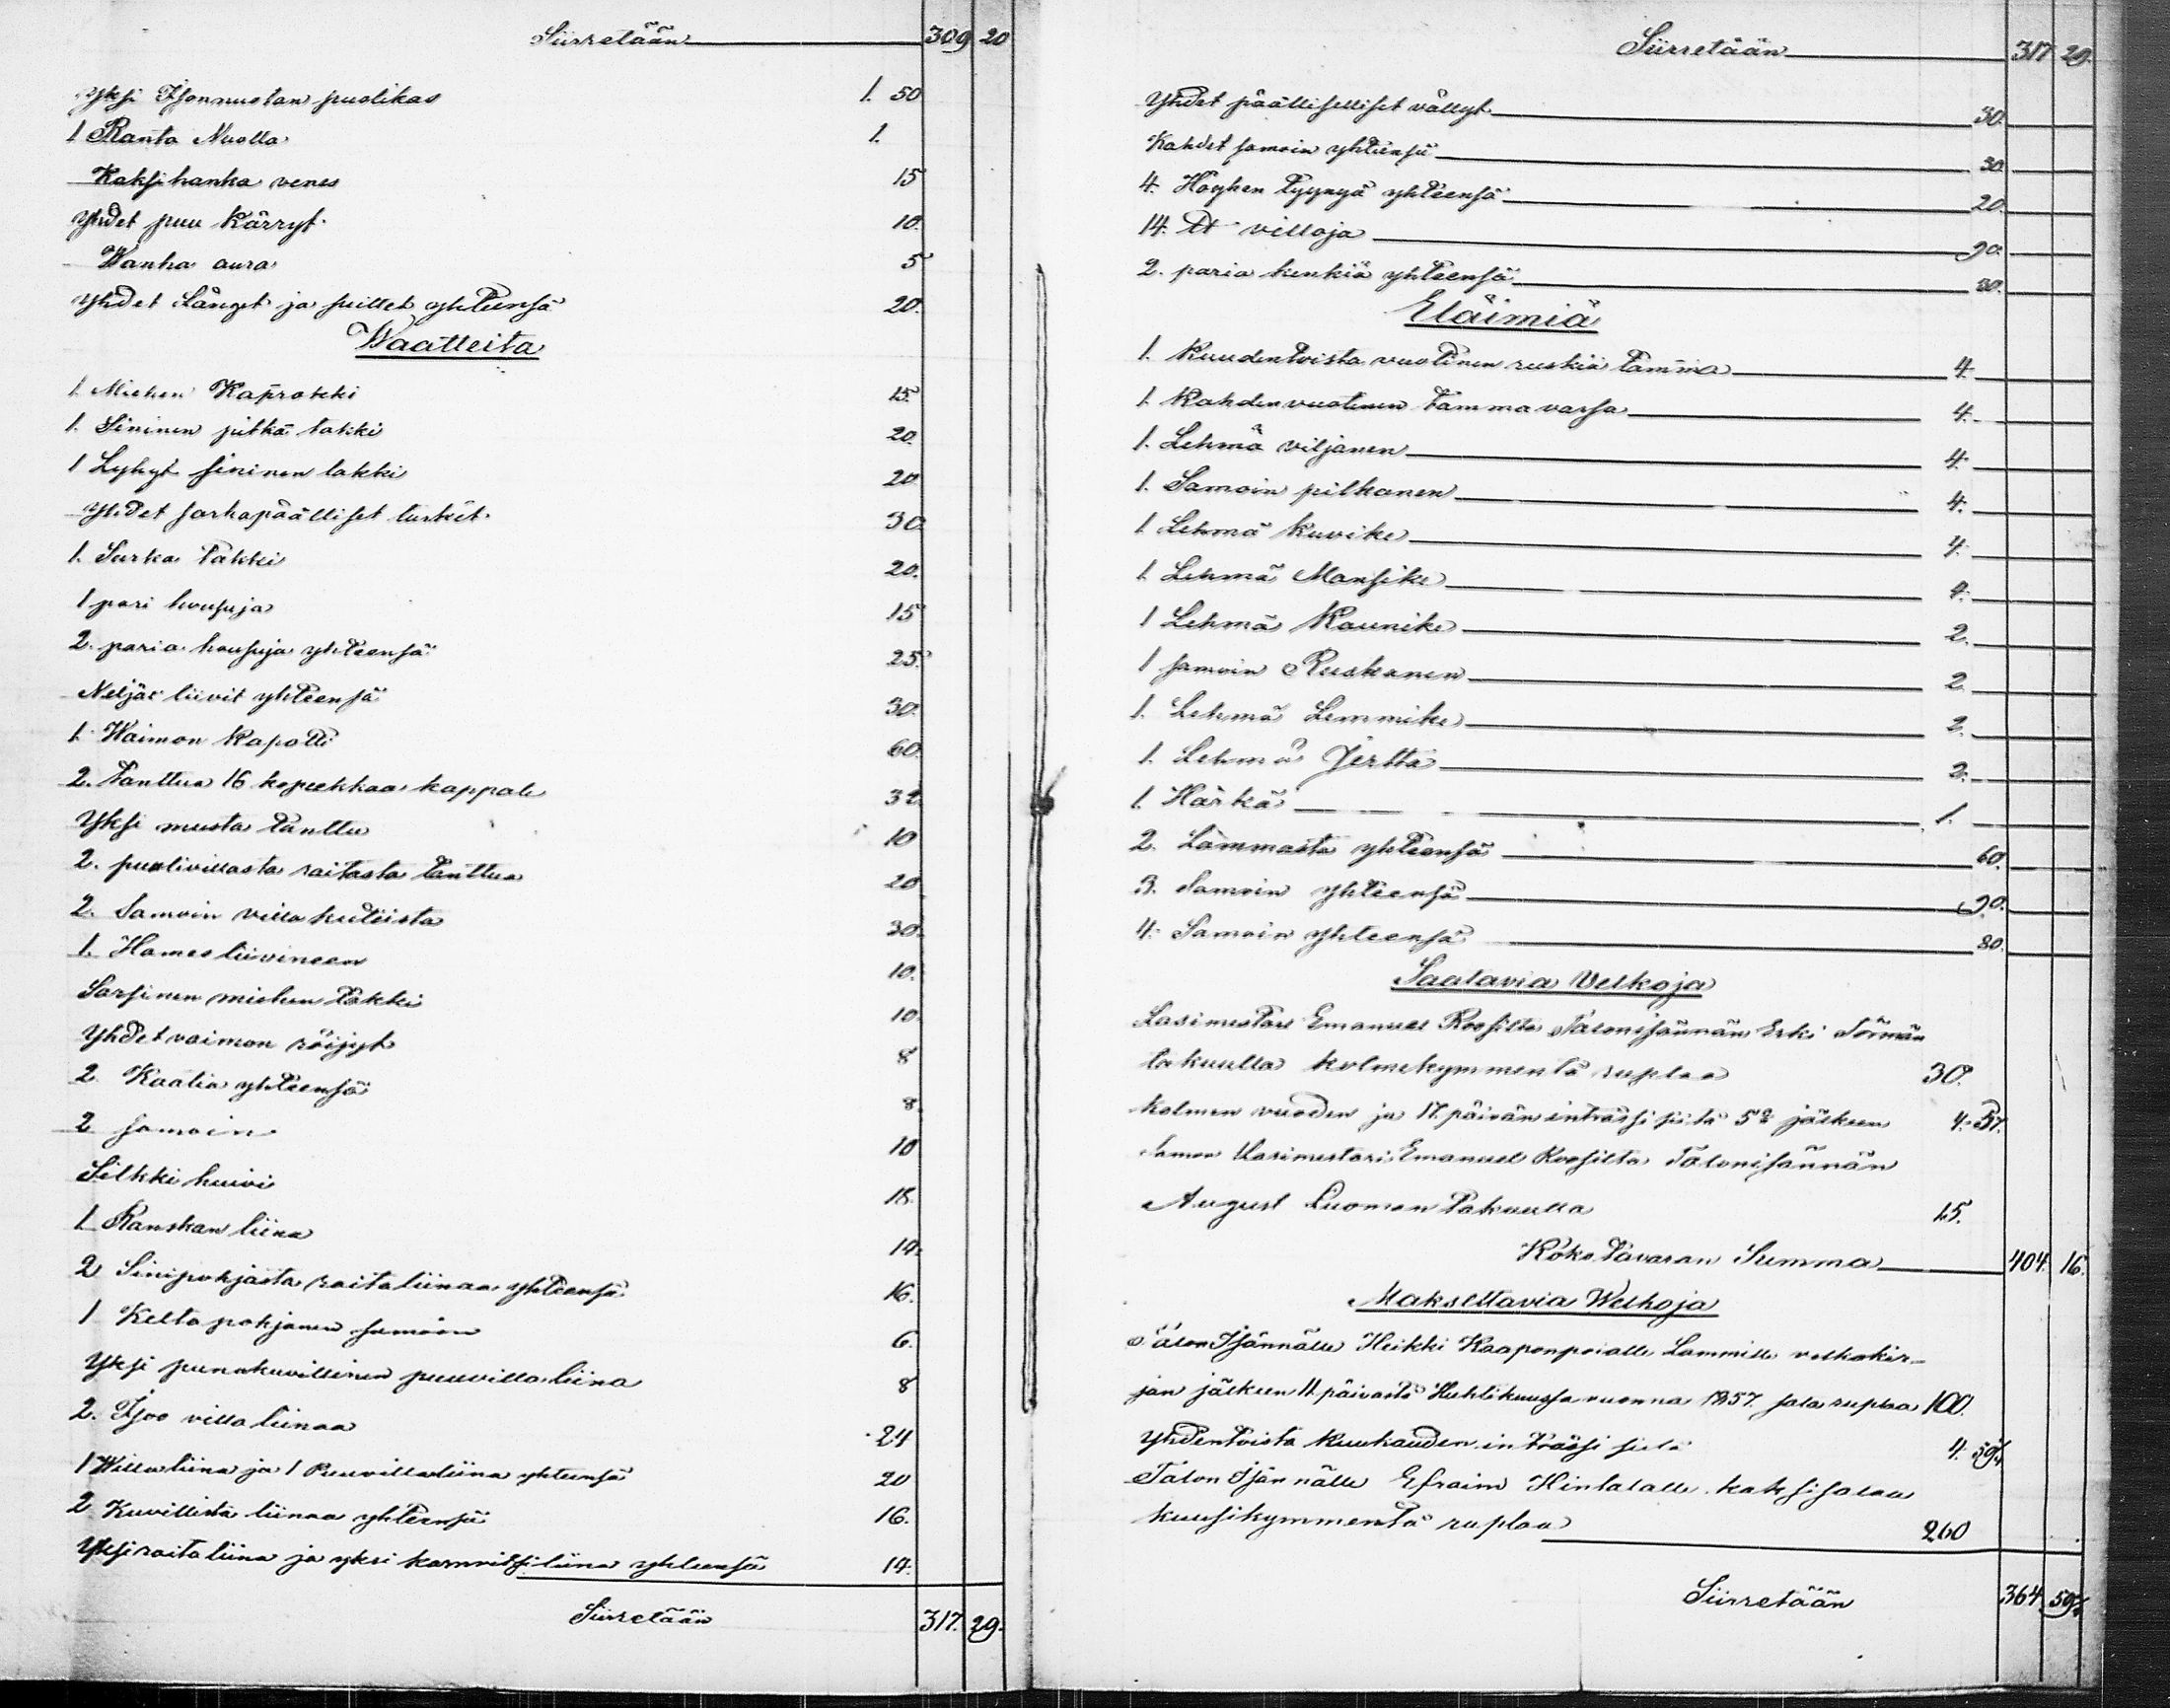 Siirretään 309 20
Yksi Isonnuotan puolikas 1. 50
1 Ranta Nuotta 1.
Kaksihanka venes 15
Yhdet puu Kärryt 10.
Wanha aura 5
Yhdet Länget ja suittet yhteensä 20.
Waatteita
1. Miehen Kaprokki 15.
1. Sininen pitkä takki 20.
1 Lyhyt sininen takki 20
Yhdet sarkapäälliset turkit 30.
1. Sarka takki 20.
1 pari housuja 15
2. paria housuja yhteensä 25.
Neljät liivit yhteensä 30.
1. Waimon Kapotti 60.
2. tanttua 16 kopeekkaa kappale 32.
Yksi musta tanttu 10
2. puolivillasta raitasta tanttua 20
2. Samoin villakuteista 30.
1. Hames liivineen 10.
Sarsinen miehen takki 10.
Yhdet vaimon röijyt 8
2 Kaatia yhteensä 8.
2 samoin 10
Silkki huivi 18.
1 Ranskan liina 14.
2 Sinipohjasta raitaliinaa yhteensä 16.
1 Keltapohjanen samoin 6.
Yksi punakuvillinen puuvilla liina 8
2. Isoo villa liinaa 24
1 Willa liina ja 1 Puuvillaliina yhteensä 20
2 Kuvillista liinaa yhteensä 16.
Yksi raita liina ja yksi liina yhteensä 14.
Siirretään 317. 29.
Siirretään 317 29.
Yhdet päälliselliset vällyt 30.
Kahdet samoin yhteensä 30.
4. Höyhen tyynyä yhteensä 20.
14. ℔ villoja 90.
2. paria kenkiä yhteensä 30.
Eläimiä
1. Kuudentoista vuotinen ruskia tamma 4.
1. Kahdenvuotinen tamma varsa 4.
1. Lehmä viljanen 4.
1. Samoin pilkanen 4.
1 Lehmä Kuvike 4.
1. Lehmä Mansike 4.
1 Lehmä Kaunike 2.
1 samoin Ruskanen 2
1. Lehmä Lemmike 2.
1. Lehmä Jertta 2.
1. Härkä 1.
2. Lammasta yhteensä 60.
3. Samoin yhteensä 90.
4. Samoin yhteensä 80.
Saatavia Velkoja
Lasimestari Emanuel Roosilta Talonisännän Erki Törmän
takuulla kolmekymmentä ruplaa 30.
Kolmen vuoden ja 17. päivän inträssi siitä 5 jälkeen 4. 57.
Samon Lasimestari Emanuel Roosilta Talonisännän
August Luoman takuulla 15.
Koko tavaran Summa 404. 16.
Maksettavia Welkoja
Talon Isännälle Heikki Kaaponpoialle Lammille velkakir-
jan jälkeen 11. päivästä Huhtikuussa vuonna 1857. sata ruplaa 100.
Yhdentoista kuukauden inträssi siitä 4. 59¼
Talon Isännälle Efraim Hintalalle kaksisataa
kuusikymmentä ruplaa 260
Siirretään 364 59¼